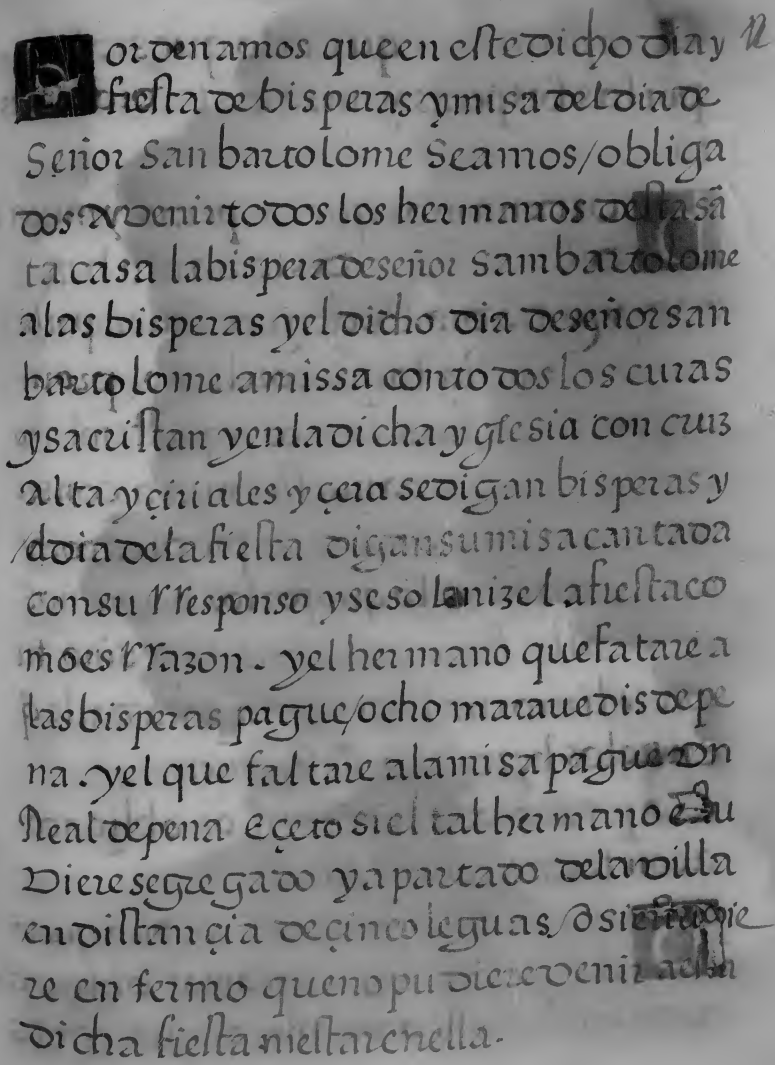 12
ordenamos que en este dicho dia y
fiesta de bisperas y misa del dia de
Señor San bartolome Seamos/obliga
dos A venir todos los hermanos desta sã
ta casa la bispera de señor Sam bartolome
a las bisperas y el dicho dia de señor san
bartolome a missa con todos los curas
y sacristan y en la dicha yglesia con cruz
Alta y çiriales y çera se digan bisperas y
/el dia de la fiesta digan su misa cantada
con su rresponso y se solanize la fiesta co
mo es rrazon. y el hermano que fatare a
las bisperas pague/ocho maravedis de pe
na. y el que faltare a la misa pague Vn
Real de pena eçeto si el tal hermano estu
Viere segregado y apartado de la villa
en distançia de çinco leguas/o si estuvie
re enfermo que no pudiere venir a la
dicha fiesta ni estar en ella.